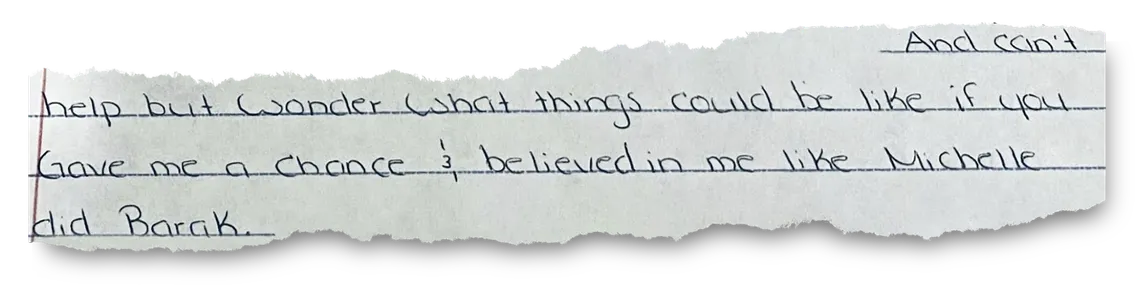 And can't
help but wonder what things could be like if you
Gave me a chance & believed in me like Michelle
did Barak.